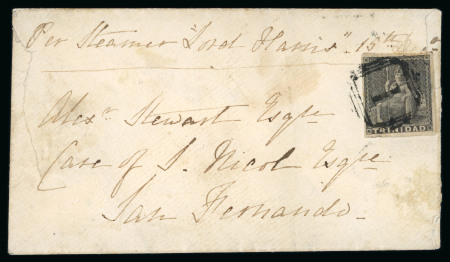 Per Steamer "Lord Harris" 15th
Alexr Stewart Esqre
Care of J. Nicol Esqre
San Fernando
TRINIDAD